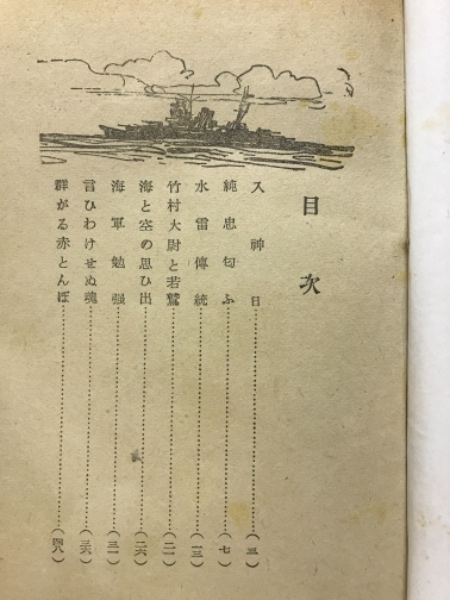 目次
入神日……(三)
純忠匂ふ……(七)
水雷傳統……(一三)
竹村大尉と若鷲……(二一)
海と空の思ひ出……(二六)
海軍勉强……(三一)
言ひわけせぬ魂……(三六)
群がる赤とんぼ……(四八)